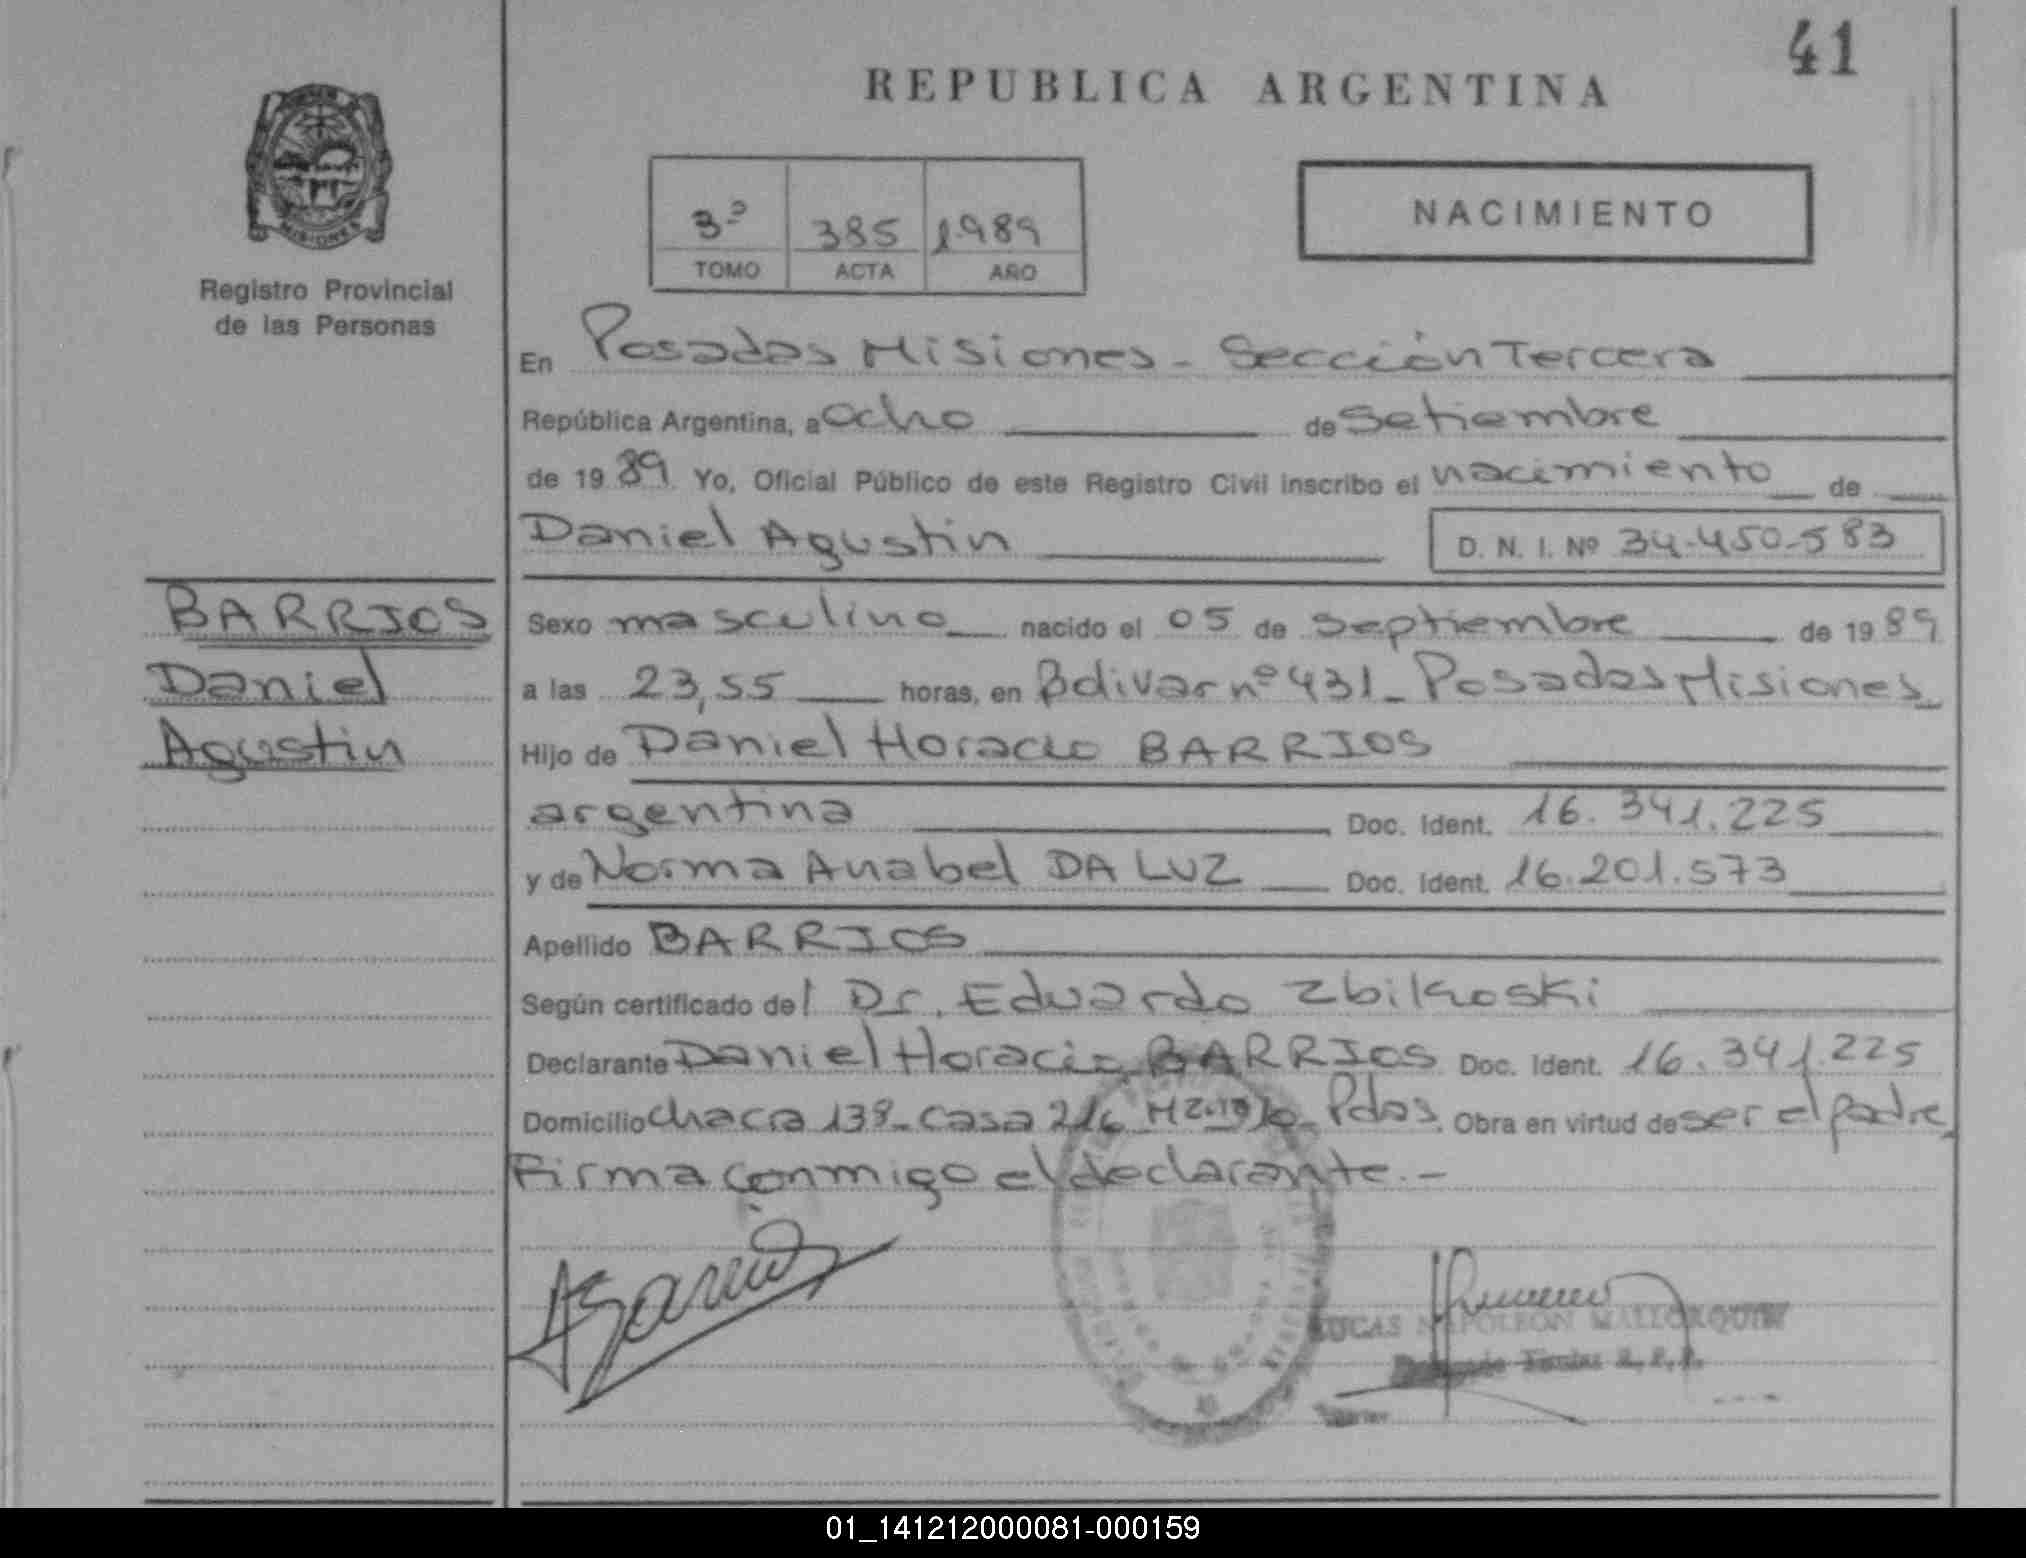 41
REPUBLICA ARGENTINA
MISIONES
Registro Provincial
de las Personas
3º 385 1989
TOMO ACTA AÑO
NACIMIENTO
En Posadas Misiones - Sección Tercera
República Argentina, a ocho de Setiembre
de 1989 Yo, Oficial Público de este Registro Civil inscribo el nacimiento de
Daniel Agustin D. N. I. Nº 34.450.583
BARRIOS
Daniel
Agustin
Sexo masculino nacido el 05 de Septiembre de 1989
a las 23,55 horas, en Bolivar nº 431 - Posadas Misiones
Hijo de Daniel Horacio BARRIOS
argentina Doc. Ident. 16.341.225
y de Norma Anabel DA LUZ Doc. Ident. 16.201.573
Apellido BARRIOS
Según certificado del Dr. Eduardo Zbikoski
Declarante Daniel Horacio BARRIOS Doc. Ident. 16.341.225
Domicilio chacra 138 - casa 216 Pdas. Obra en virtud de ser el padre
Firma conmigo el declarante.-
LUCAS NAPOLEON MALLORQUIN
Titular R.P.P.
01_141212000081-000159